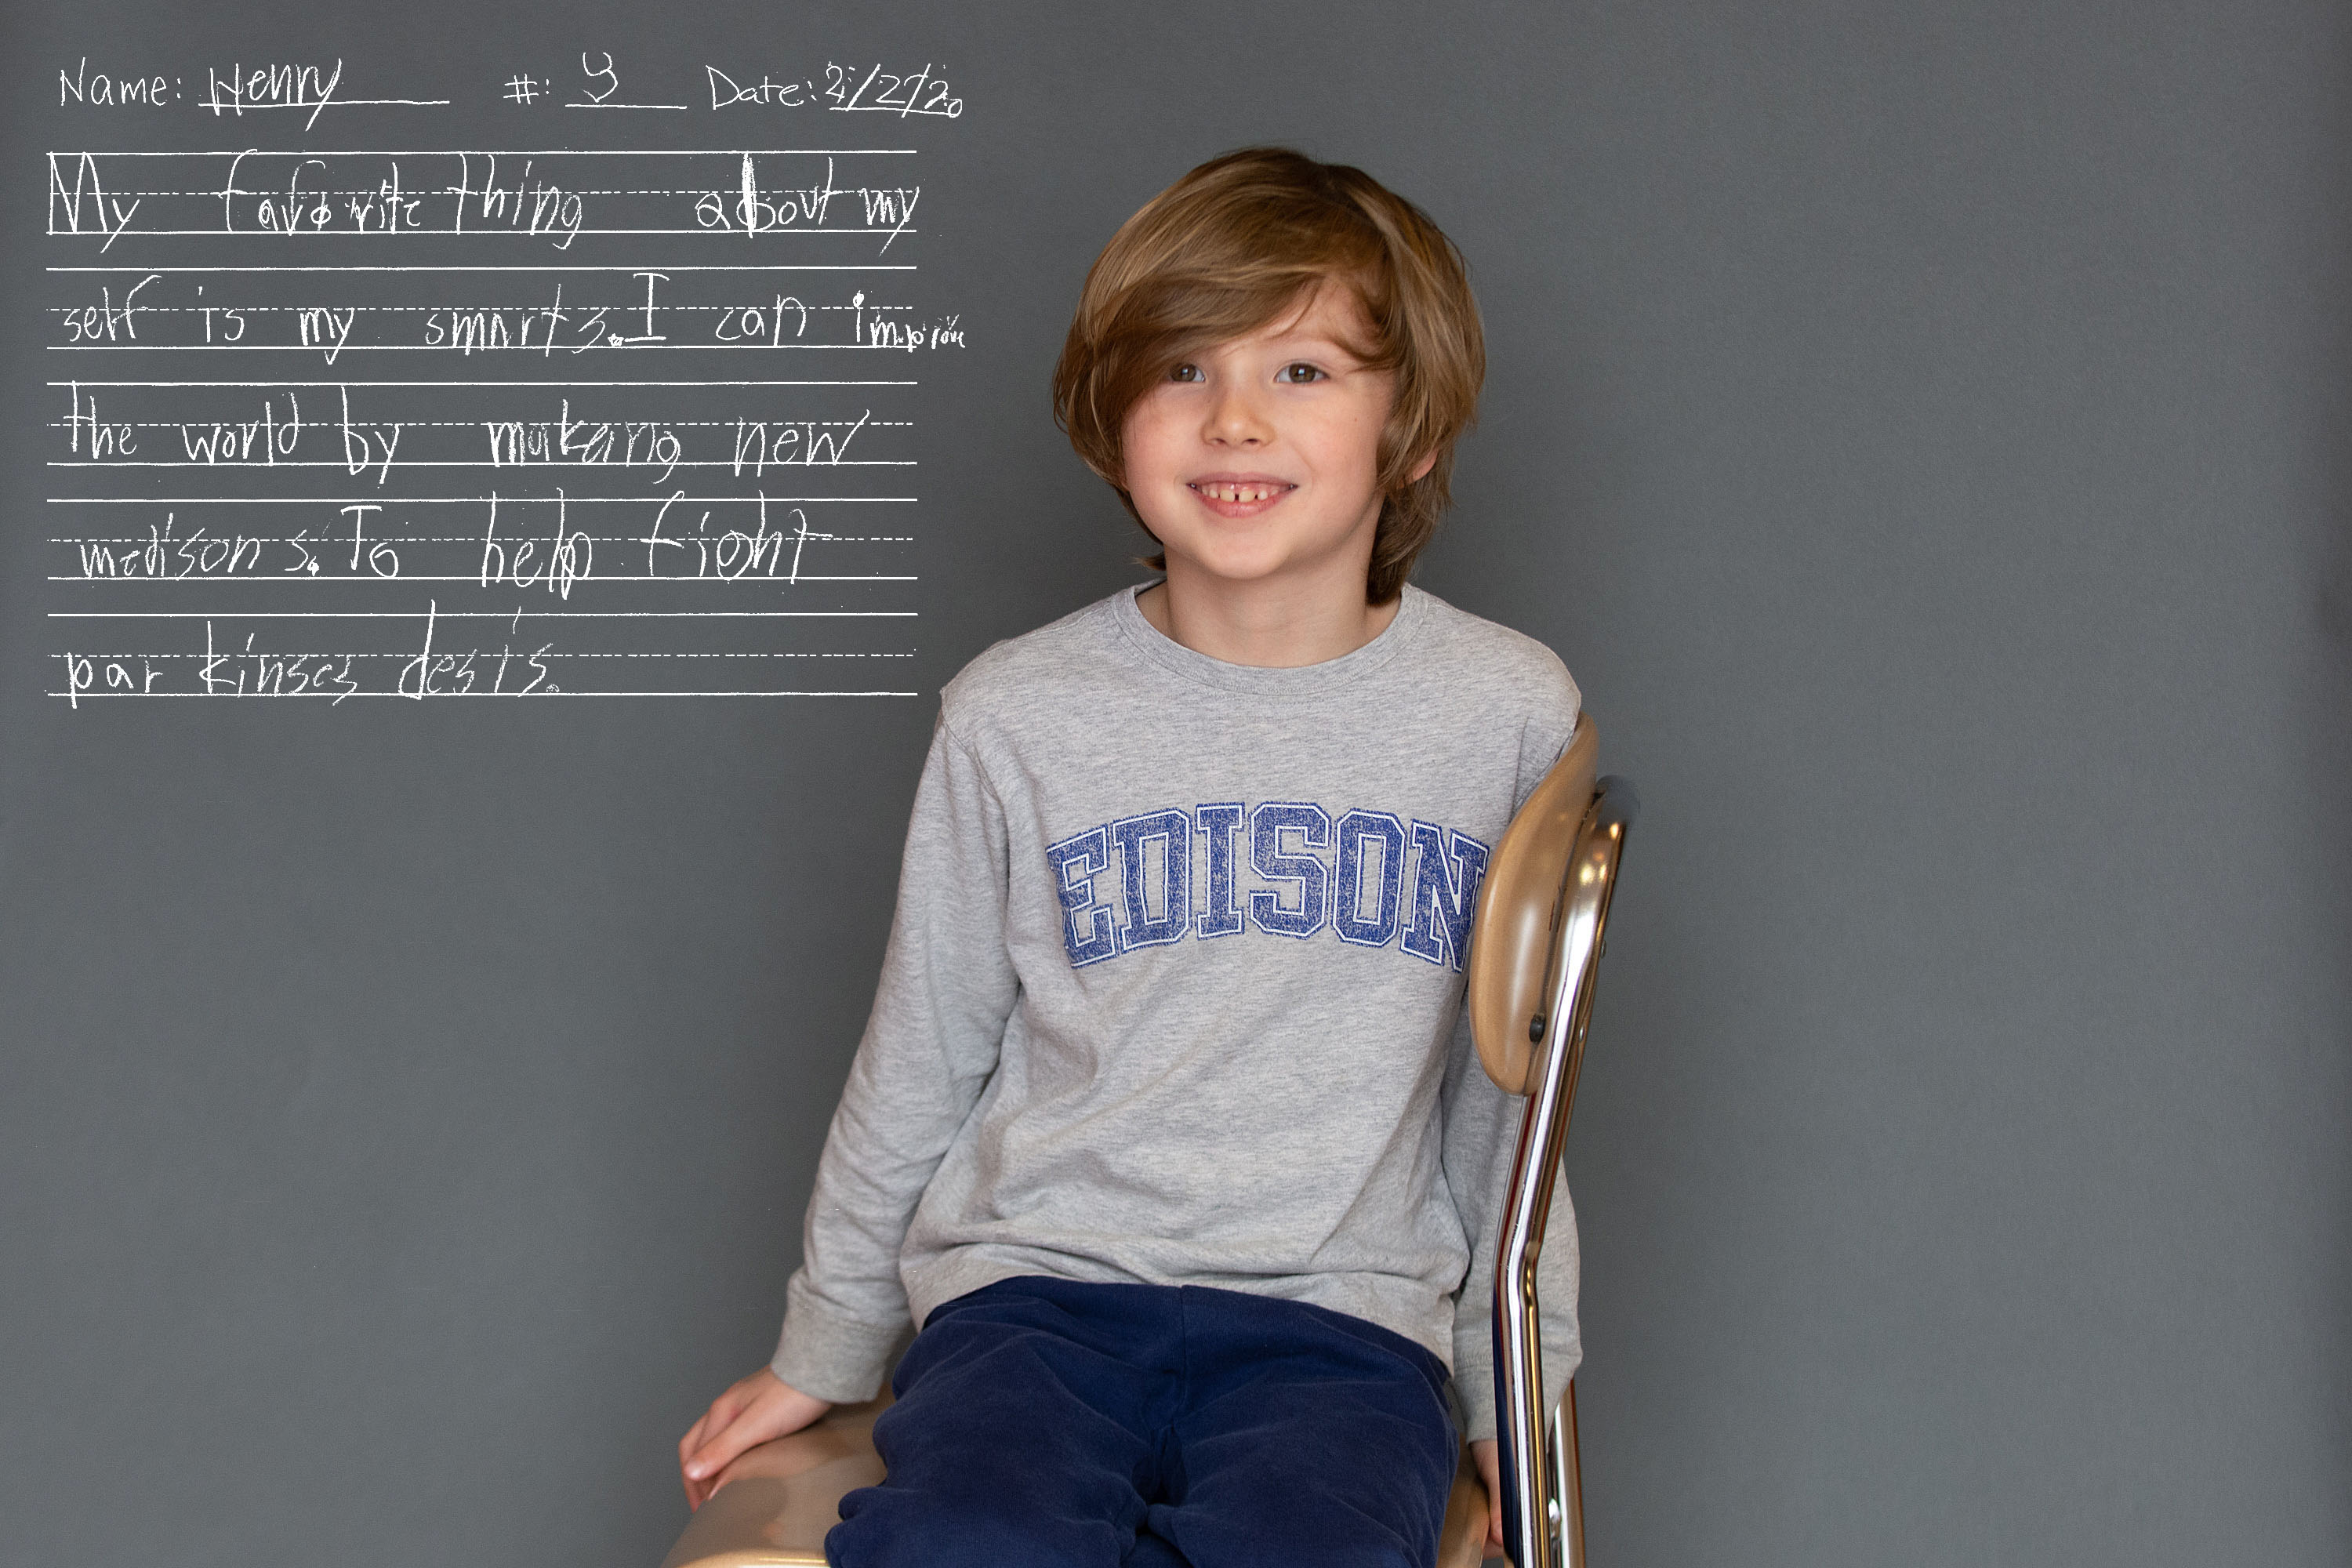 Name: Henry #: 9 Date: 2/27/20
My faforite thing about my
self is my smarts. I can improve
the world by makeing new
medison s. To help fight
par kinses desis.
EDISON